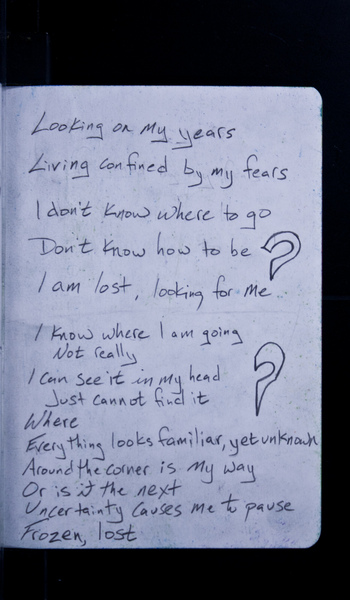 Looking on my years
Living confined by my fears
I don't know where to go
Don't know how to be ?
I am lost, looking for me..
I know where I am going
Not really
I can see it in my head ?
Just cannot find it
Where
Everything looks familiar, yet unknown
Around the corner is my way
Or is it the next
Uncertainty causes me to pause
Frozen, lost